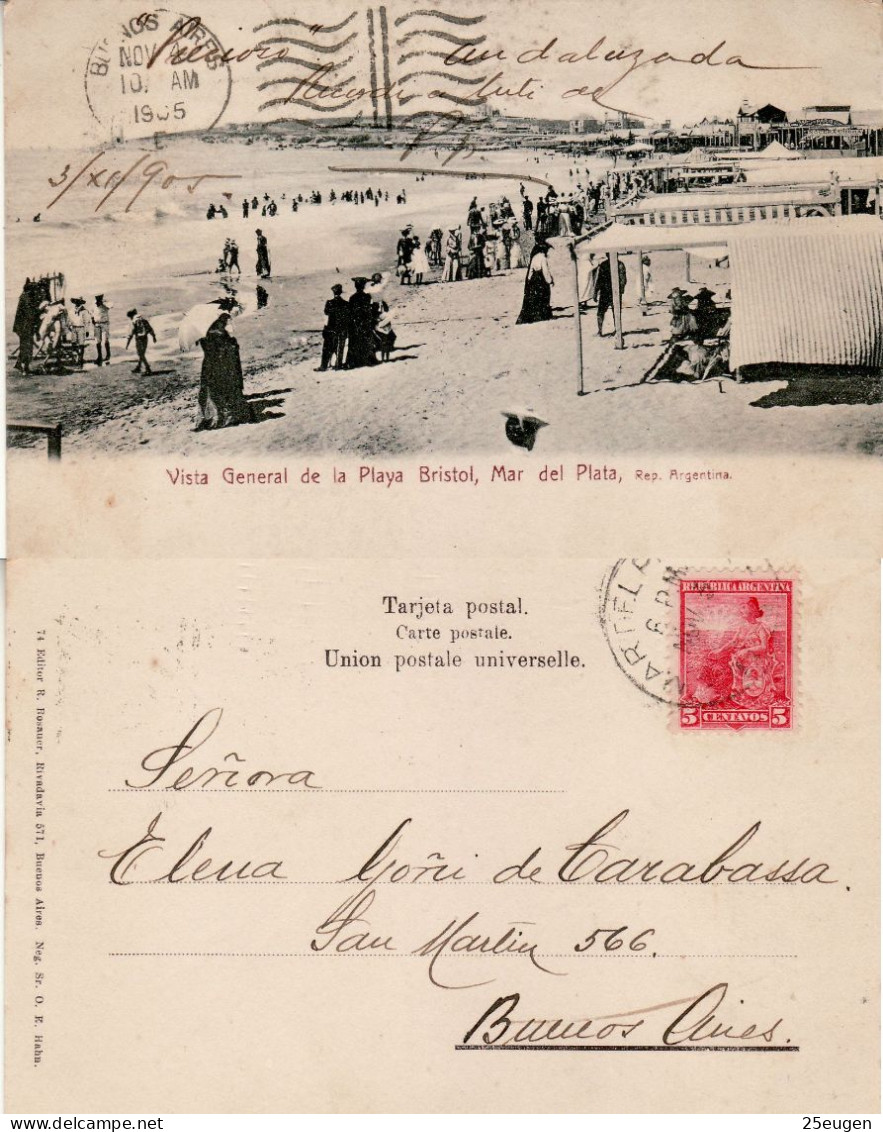 BUENOS AIRES
NOV 4
10 AM
1905
andaluzada
3/XI/905
Vista General de la Playa Bristol, Mar del Plata, Rep. Argentina.
Tarjeta postal.
Carte postale.
Union postale universelle.
MAR DEL
6 PM
REPUBLICA ARGENTINA
5 CENTAVOS 5
74 Editor R. Rosauer, Rivadavia 571, Buenos Aires. Neg. Sr. O. E. Hahn.
Señora
Elena Goñi de Carabassa.
San Martin 566.
Buenos Aires.
25eugen